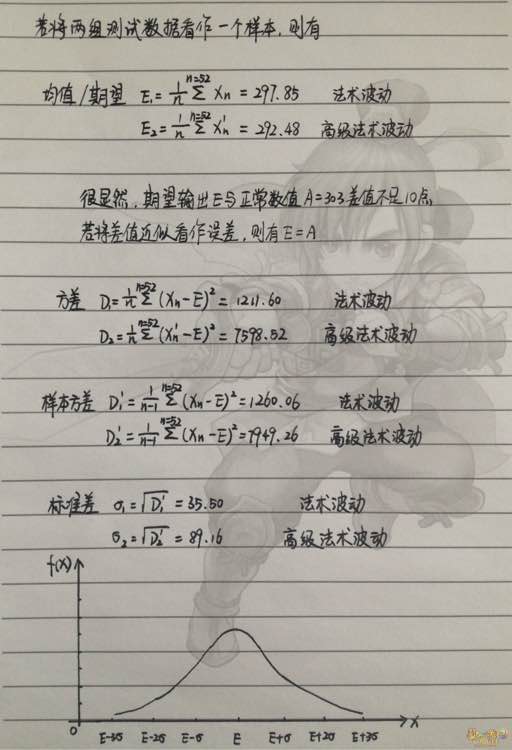 若将两组测试数据看作一个样本，则有
均值/期望 E₁=1/n Σⁿ⁼⁵² Xn = 297.85 法术波动
E₂=1/n Σⁿ⁼⁵² Xn' = 292.48 高级法术波动
很显然，期望输出E与正常数值A=303差值不足10点
若将差值近似看作误差，则有E=A
方差 D₁=1/n Σⁿ⁼⁵² (Xn-E)² = 1211.60 法术波动
D₂=1/n Σⁿ⁼⁵² (Xn'-E)² = 7598.52 高级法术波动
样本方差 D₁'=1/(n-1) Σⁿ⁼⁵² (Xn-E)² = 1260.06 法术波动
D₂'=1/(n-1) Σⁿ⁼⁵² (Xn-E)² = 7949.26 高级法术波动
标准差 σ₁=√D₁' = 35.50 法术波动
σ₂=√D₂' = 89.16 高级法术波动
f(x)
0 E-3σ E-2σ E-σ E E+σ E+2σ E+3σ X